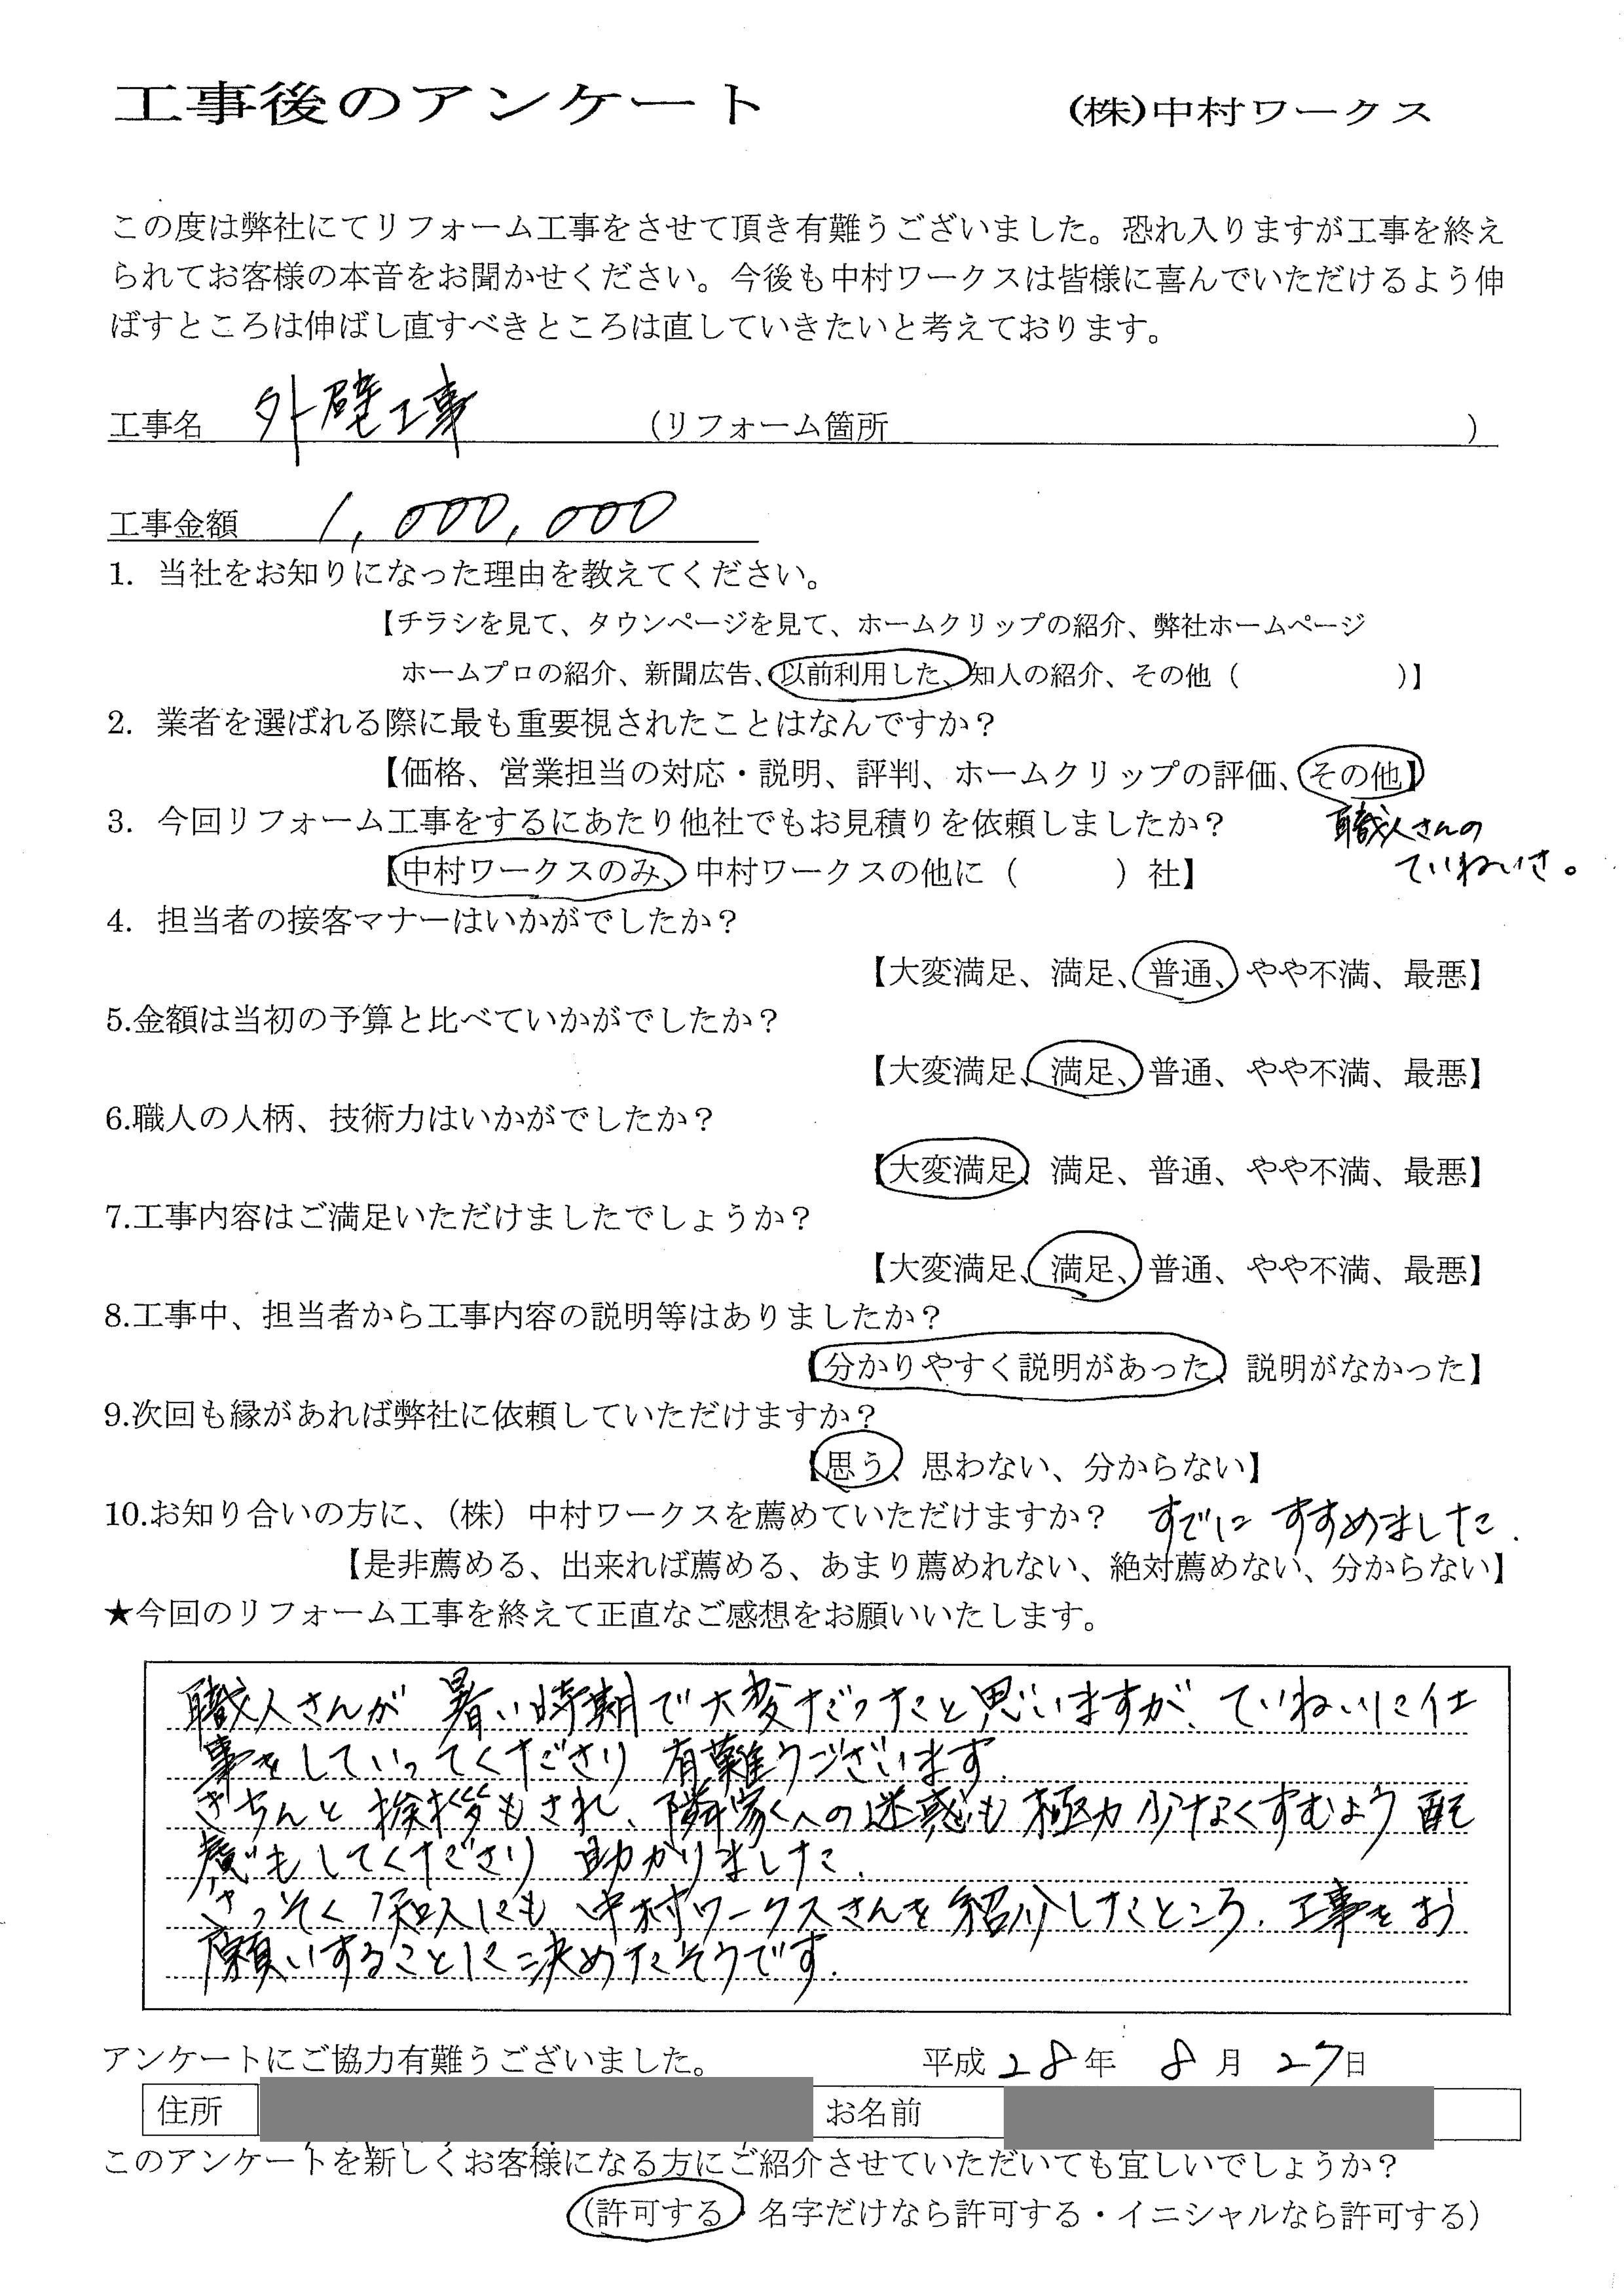 工事後のアンケート (株)中村ワークス
この度は弊社にてリフォーム工事をさせて頂き有難うございました。恐れ入りますが工事を終え
られてお客様の本音をお聞かせください。今後も中村ワークスは皆様に喜んでいただけるよう伸
ばすところは伸ばし直すべきところは直していきたいと考えております。
工事名 外壁工事 (リフォーム箇所 )
工事金額 1,000,000
1. 当社をお知りになった理由を教えてください。
【チラシを見て、タウンページを見て、ホームクリップの紹介、弊社ホームページ
ホームプロの紹介、新聞広告、以前利用した、知人の紹介、その他( )】
2. 業者を選ばれる際に最も重要視されたことはなんですか?
【価格、営業担当の対応・説明、評判、ホームクリップの評価、その他】
3. 今回リフォーム工事をするにあたり他社でもお見積りを依頼しましたか? 職人さんの
【中村ワークスのみ、中村ワークスの他に( )社】 ていねいさ。
4. 担当者の接客マナーはいかがでしたか?
【大変満足、満足、普通、やや不満、最悪】
5.金額は当初の予算と比べていかがでしたか?
【大変満足、満足、普通、やや不満、最悪】
6.職人の人柄、技術力はいかがでしたか?
【大変満足、満足、普通、やや不満、最悪】
7.工事内容はご満足いただけましたでしょうか?
【大変満足、満足、普通、やや不満、最悪】
8.工事中、担当者から工事内容の説明等はありましたか?
【分かりやすく説明があった、説明がなかった】
9.次回も縁があれば弊社に依頼していただけますか?
【思う、思わない、分からない】
10.お知り合いの方に、(株)中村ワークスを薦めていただけますか? すでにすすめました.
【是非薦める、出来れば薦める、あまり薦めれない、絶対薦めない、分からない】
★今回のリフォーム工事を終えて正直なご感想をお願いいたします。
職人さんが暑い時期で大変だったと思いますが、ていねいに仕
事をしていってくださり有難うございます.
きちんと挨拶もされ、隣家への迷惑も極力少なくすむよう配
慮もしてくださり助かりました.
さっそく知人にも中村ワークスさんを紹介したところ、工事をお
願いすることに決めたそうです.
アンケートにご協力有難うございました。 平成28年 8月27日
住所 お名前
このアンケートを新しくお客様になる方にご紹介させていただいても宜しいでしょうか?
(許可する・名字だけなら許可する・イニシャルなら許可する)